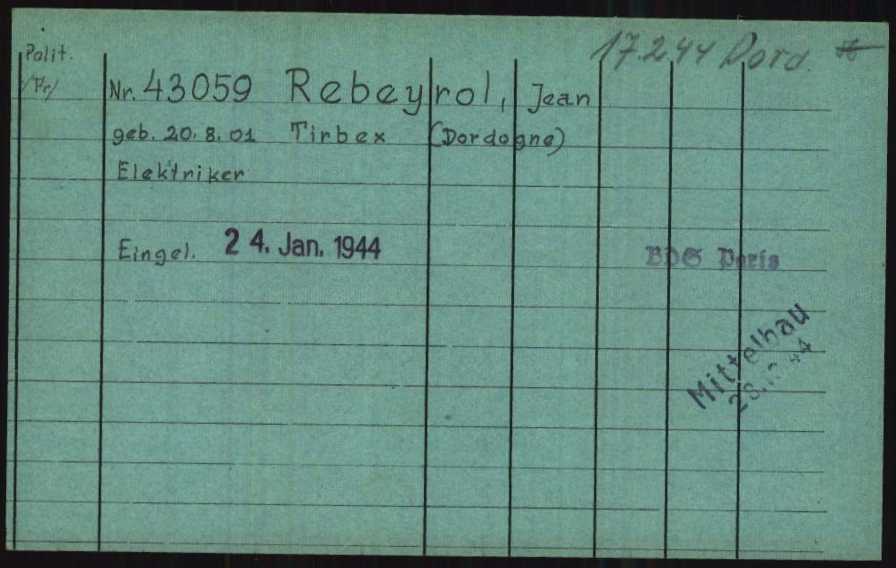 17.2.44 Dora.
Polit.
/Fr/
Nr. 43059 Rebeyrol, Jean
geb. 20.8.01 Tirbex (Dordogne)
Elektriker
Eingel. 24. Jan. 1944
BDS Paris
Mittelbau
28.10.44